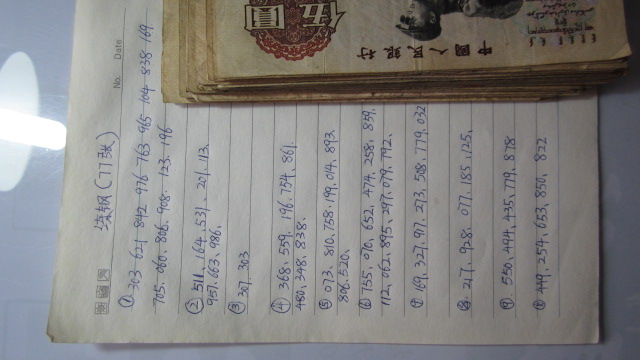 No. Date
炼钢(77张)
① 303 621 842 976 763 965 104 838 169
705. 060. 806. 908. 123. 196
② 511、164、531、201、113、
957、663、086、
③ 307、303
④ 368、559、196、754、861、
480、348、838、
⑤ 073、810、758、199、014、893、
806、520、
⑥ 755、070、652、474、258、859、
112、662、895、297、079、792、
⑦ 169、327、97、273、508、779、032
⑧ 217、928、077、185、125、
⑨ 550、494、435、779、878
⑩ 449、254、653、850、822
中國人民銀行
伍圓